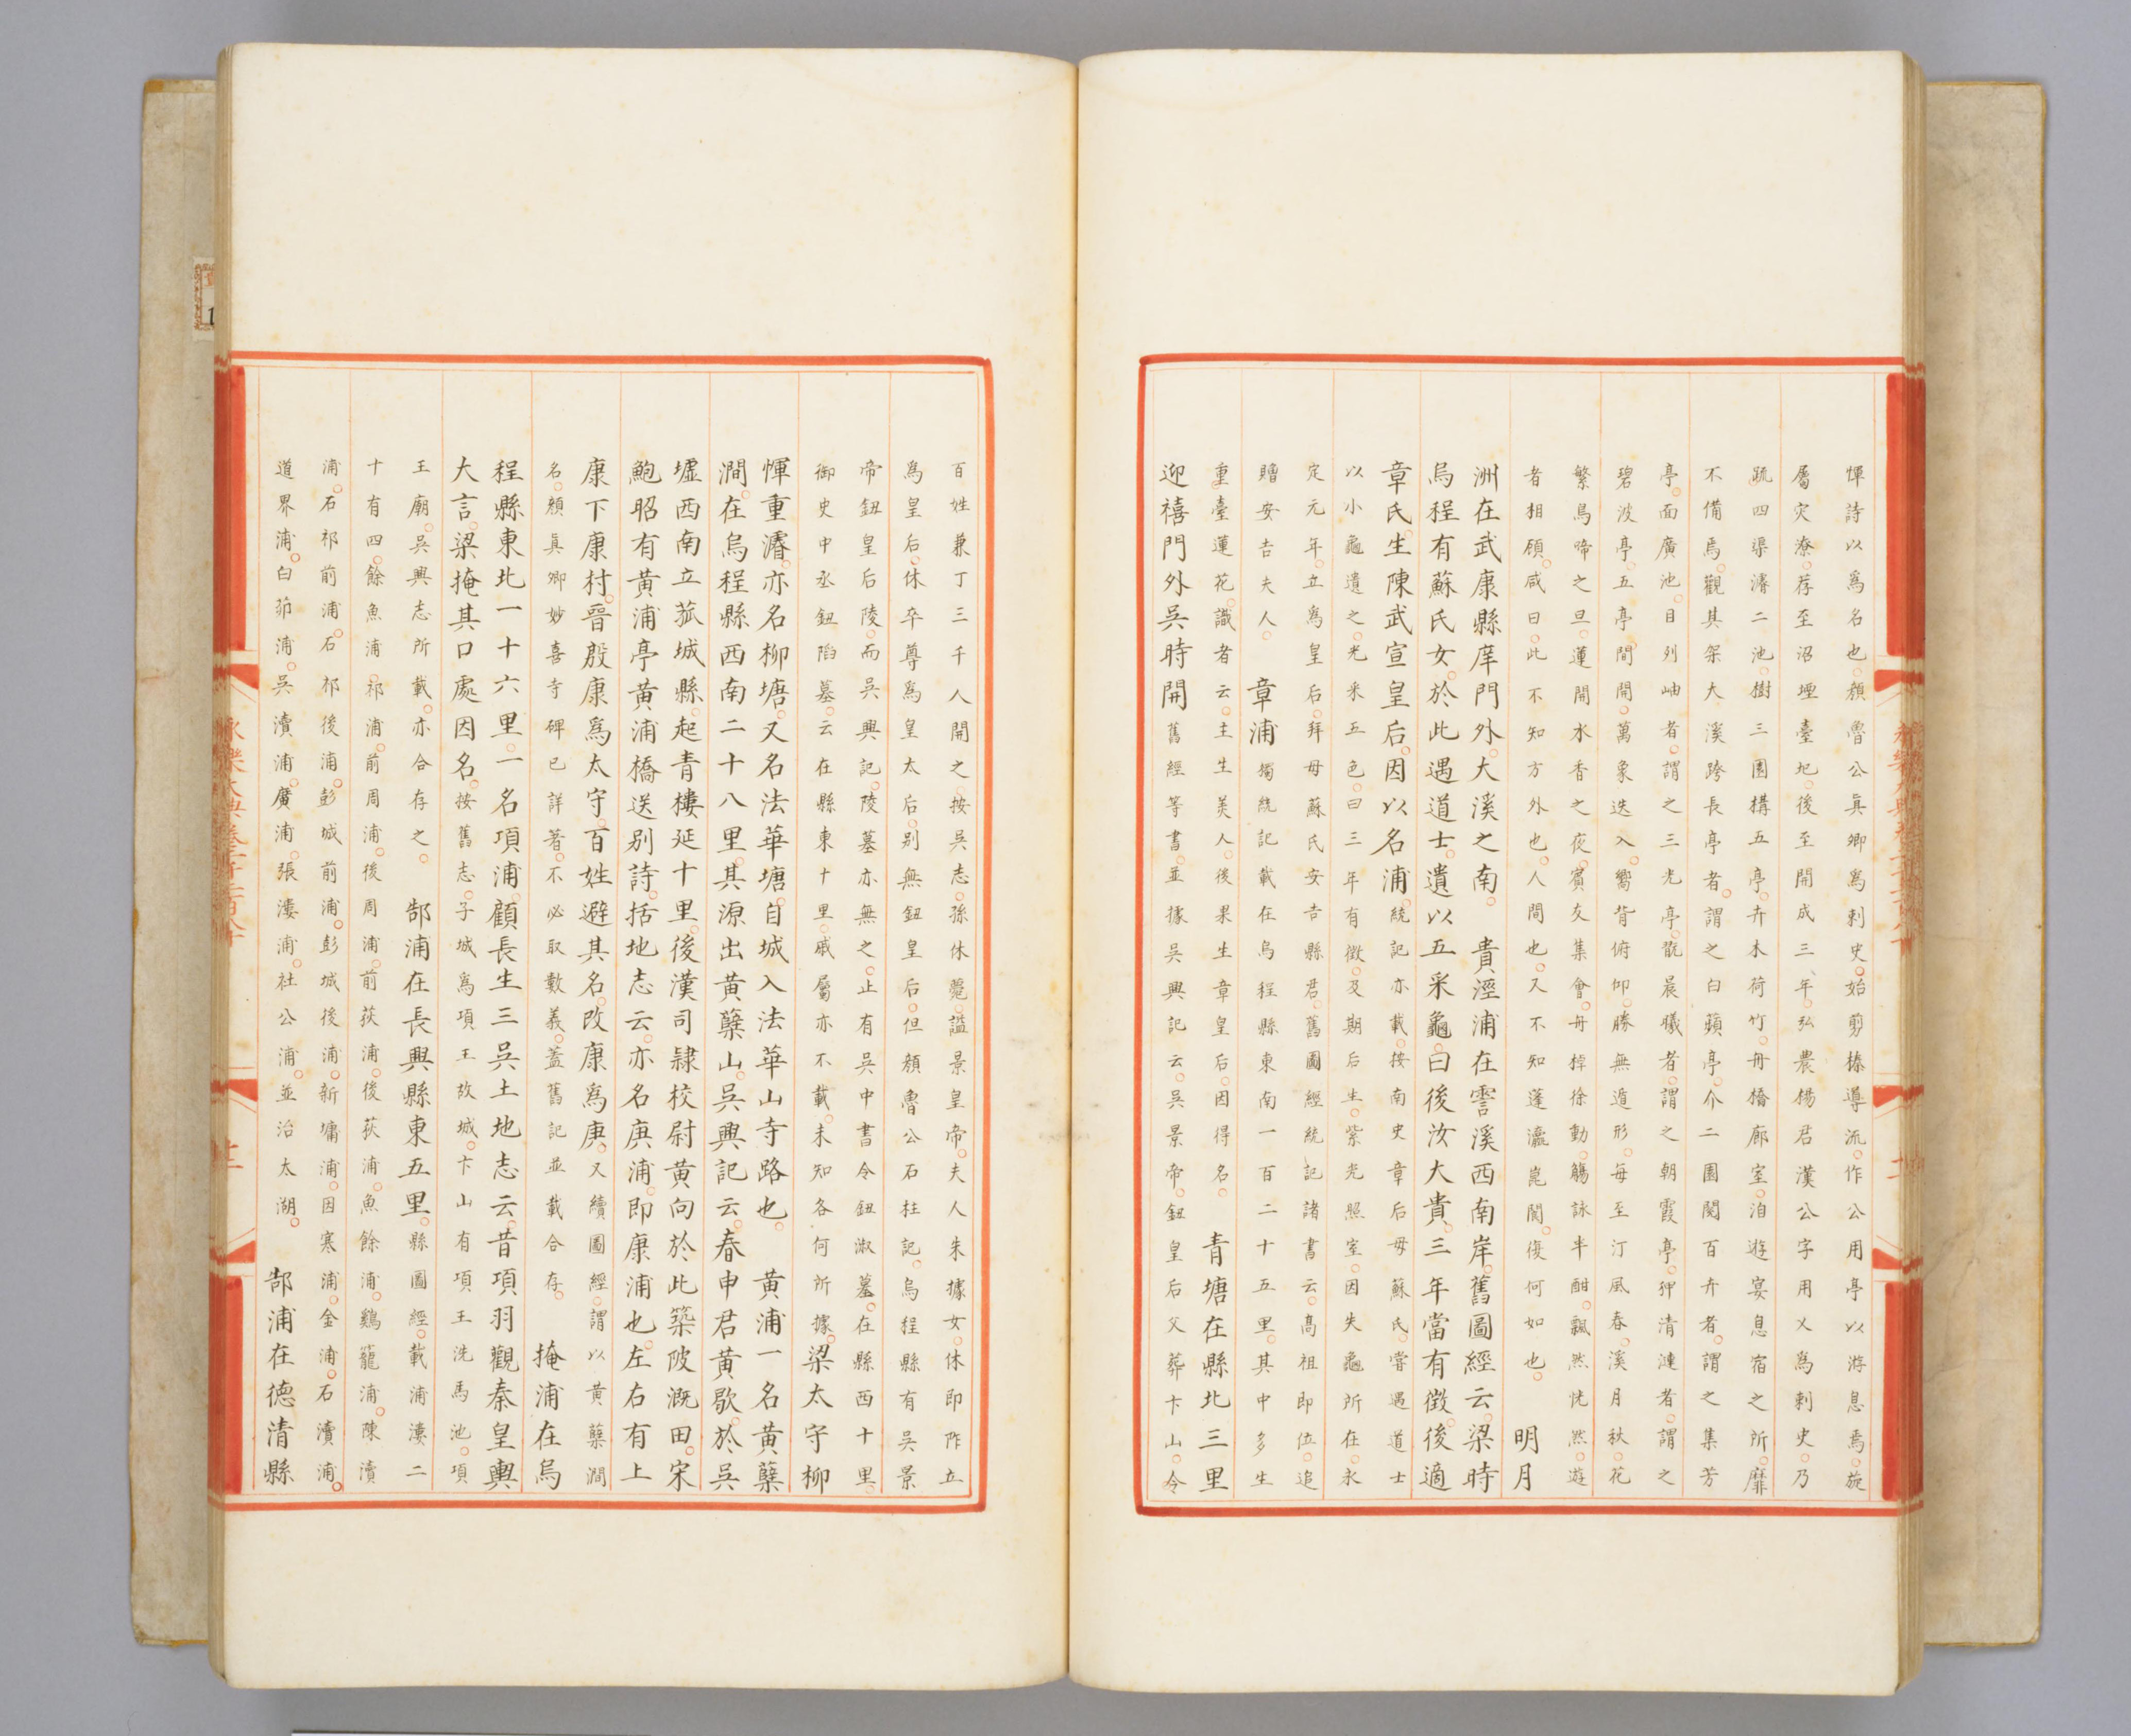 惲詩以爲名也顏魯公眞卿爲刺史始剪榛導流作公用亭以游息焉旋
屬灾潦荐至沼堙臺圮後至開成三年弘農楊君漢公字用乂爲刺史乃
疏四渠濬二池樹三園構五亭卉木荷竹舟橋廊室洎遊宴息宿之所靡
不備焉觀其架大溪跨長亭者謂之白蘋亭介二園閱百卉者謂之集芳
亭面廣池目列岫者謂之三光亭翫晨曦者謂之朝霞亭狎清漣者謂之
碧波亭五亭間開萬象迭入嚮背俯仰勝無遁形每至汀風春溪月秋花
繁鳥啼之旦蓮開水香之夜賓友集會舟棹徐動觴詠半酣飄然恍然遊
者相顧咸曰此不知方外也人間也又不知蓬瀛崑閬復何如也 明月
洲在武康縣庠門外大溪之南 貴涇浦在霅溪西南岸舊圖經云梁時
烏程有蘇氏女於此遇道士遺以五采龜曰後汝大貴三年當有徵後適
章氏生陳武宣皇后因以名浦統記亦載按南史章后母蘇氏嘗遇道士
以小龜遺之光采五色曰三年有徵及期后生紫光照室因失龜所在永
定元年立爲皇后拜母蘇氏安吉縣君舊圖經統記諸書云高祖即位追
贈安吉夫人 章浦獨統記載在烏程縣東南一百二十五里其中多生
重臺蓮花識者云主生美人後果生章皇后因得名 青塘在縣北三里
迎禧門外吳時開舊經等書並據吳興記云吳景帝鈕皇后父葬卞山令
百姓兼丁三千人開之按吳志孫休薨謚景皇帝夫人朱據女休即阼立
爲皇后休卒尊爲皇太后別無鈕皇后但顏魯公石柱記烏程縣有吳景
帝鈕皇后陵而吳興記陵墓亦無之止有吳中書令鈕淑墓在縣西十里
御史中丞鈕陷墓云在縣東十里戚屬亦不載未知各何所據梁太守柳
惲重濬亦名柳塘又名法華塘自城入法華山寺路也 黃浦一名黃蘗
澗在烏程縣西南二十八里其源出黃蘗山吳興記云春申君黃歇於吳
墟西南立菰城縣起青樓延十里後漢司隸校尉黃向於此築陂溉田宋
鮑昭有黃浦亭黃浦橋送別詩括地志云亦名庚浦即康浦也左右有上
康下康村晉殷康爲太守百姓避其名改康爲庚又續圖經謂以黃蘗澗
名顏眞卿妙喜寺碑已詳著不必取數義蓋舊記並載合存 掩浦在烏
程縣東北一十六里一名項浦顧長生三吳土地志云昔項羽觀秦皇輿
大言梁掩其口處因名按舊志子城爲項王故城卞山有項王洗馬池項
王廟吳興志所載亦合存之 郜浦在長興縣東五里縣圖經載浦漊二
十有四餘魚浦祁浦前周浦後周浦前荻浦後荻浦魚餘浦鷄籠浦陳瀆
浦石祁前浦石祁後浦彭城前浦彭城後浦新墉浦因寒浦金浦石瀆浦
道界浦白茆浦吳瀆浦廣浦張漊浦社公浦並治太湖 郜浦在德清縣